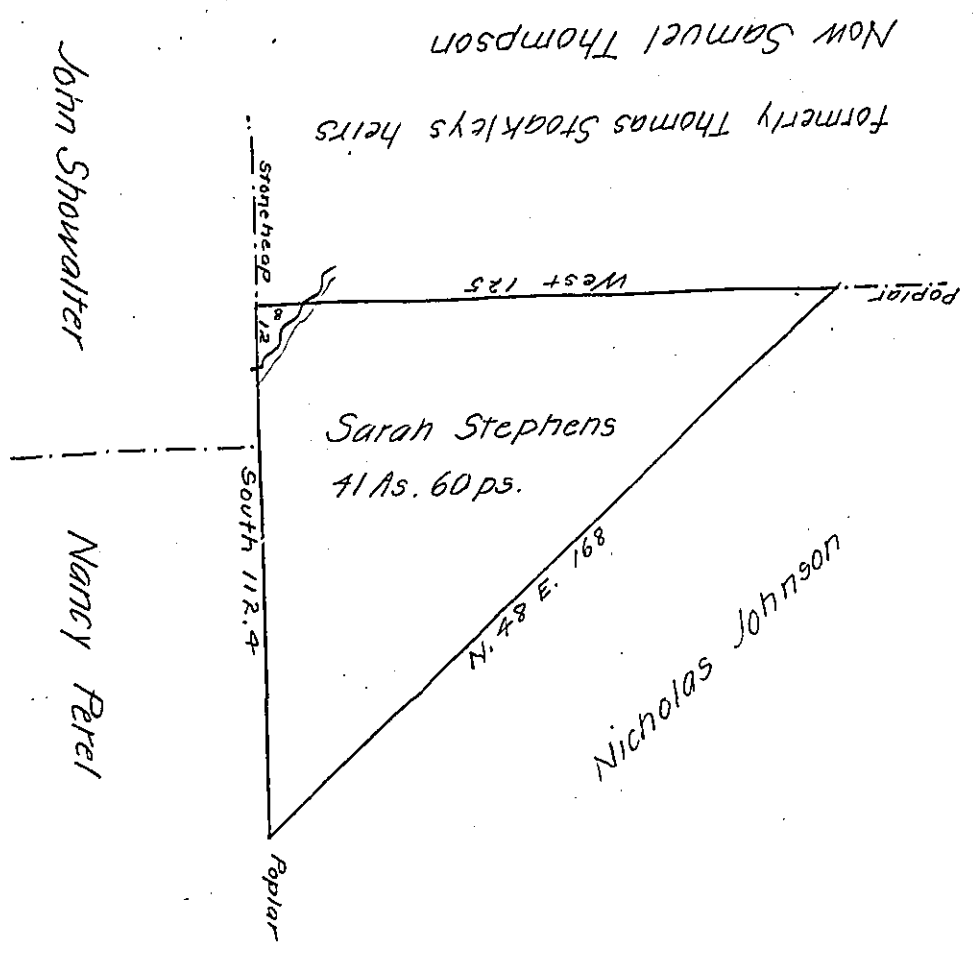 Now Samuel Thompson
formerly Thomas Stoakleys heirs
John Showalter
Stoneheap
West 125
Poplar
8
12
Sarah Stephens
41 As. 60 ps.
South 112.4
N. 48 E. 168
Nancy Perel
Nicholas Johnson
Poplar